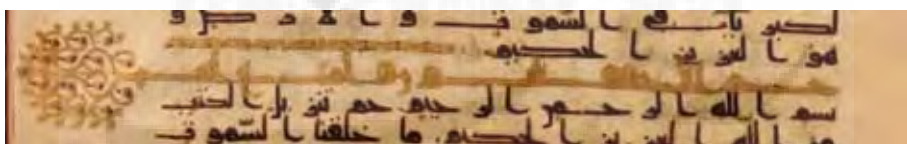 لكبريا في السموت و الارض و
هو العزيز الحكيم
بسم الله الرحمن الرحيم حم تنزيل الكتب
من الله العزيز الحكيم ما خلقنا السموت